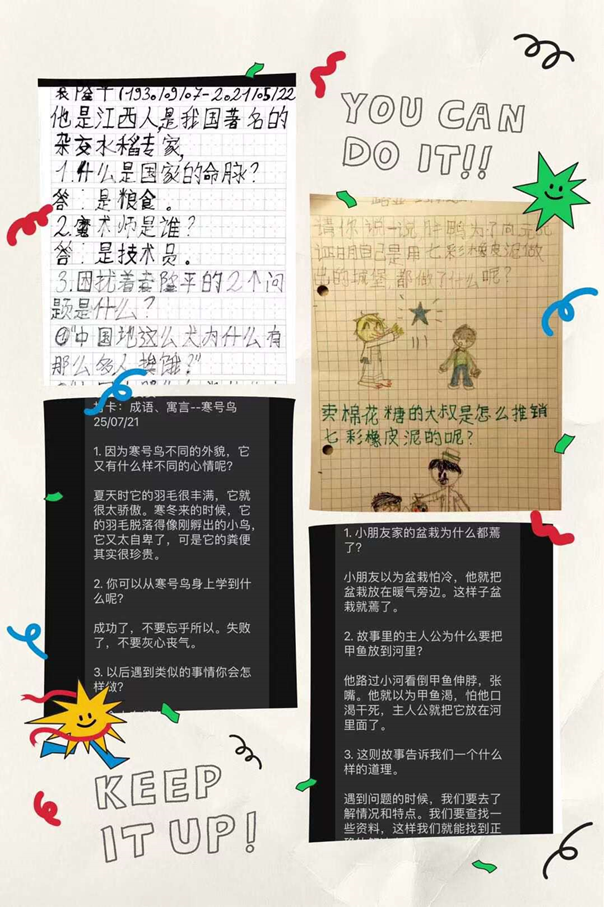 袁隆平(1930/09/07-2021/05/22
他是江西人,是我国著名的
杂交水稻专家,
1.什么是国家的命脉?
答:是粮食。
2.魔术师是谁?
答:是技术员。
3.困扰着袁隆平的2个问
题是什么?
①"中国地这么大,为什么有
那么多人挨饿?"
YOU CAN
DO IT!!
请你说一说胖鸭为了向
证明自己是用七彩橡皮泥做
的城堡都做了什么呢?
卖棉花糖的大叔是怎么推销
七彩橡皮泥的呢?
打卡:成语、寓言--寒号鸟
25/07/21
1. 因为寒号鸟不同的外貌,它
又有什么样不同的心情呢?
夏天时它的羽毛很丰满,它就
很太骄傲。寒冬来的时候,它
的羽毛脱落得像刚孵出的小鸟,
它又太自卑了,可是它的粪便
其实很珍贵。
2. 你可以从寒号鸟身上学到什
么呢?
成功了,不要忘乎所以。失败
了,不要灰心丧气。
3. 以后遇到类似的事情你会怎
样做?
1. 小朋友家的盆栽为什么都蔫
了?
小朋友以为盆栽怕冷,他就把
盆栽放在暖气旁边。这样子盆
栽就蔫了。
2. 故事里的主人公为什么要把
甲鱼放到河里?
他路过小河看倒甲鱼伸脖,张
嘴。他就以为甲鱼渴,怕他口
渴干死,主人公就把它放在河
里面了。
3. 这则故事告诉我们一个什么
样的道理。
遇到问题的时候,我们要去了
解情况和特点。我们要查找一
些资料,这样我们就能找到正
KEEP
IT UP!